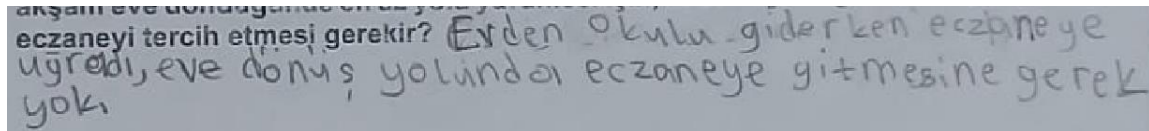 eczaneyi tercih etmesi gerekir? Evden okulu giderken eczaneye
uğradı, eve dönüş yolunda eczaneye gitmesine gerek
yok.